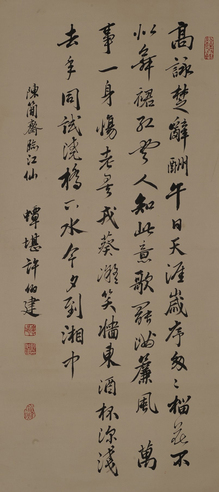 高詠楚辭酬午日天涯歲序匆〻榴花不
似舞裙紅無人知此意歌罷滿簾風 萬
事一身傷老矣戎葵凝笑墻東酒杯深淺
去年同試澆橋下水今夕到湘中
陳簡齋臨江仙
蟫堪許伯建